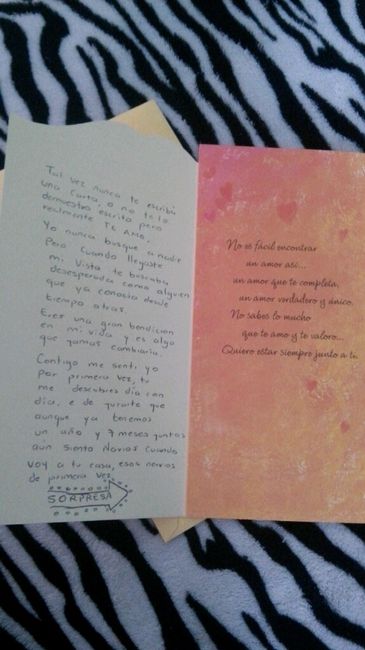 Tal vez nunca te escribí
una carta, o no te lo
demuestro escrito pero
realmente TE AMO.
Yo nunca busque a nadie
Pero cuando llegaste
mi vista te buscaba
desesperada como alguien
que ya conocia desde
tiempo atras.
Eres una gran bendicion
en mi vida y es algo
que jamas cambiaria.
Contigo me sentí yo
por primera vez, tu
me descubres día con
día, e de jurarte que
aunque ya tenemos
un año y 7 meses juntos
aún siento Navios cuando
voy a tu casa, esos nervios
de primera vez.
SORPRESA
No es fácil encontrar
un amor así...
un amor que te completa,
un amor verdadero y único.
No sabes lo mucho
que te amo y te valoro...
Quiero estar siempre junto a ti.